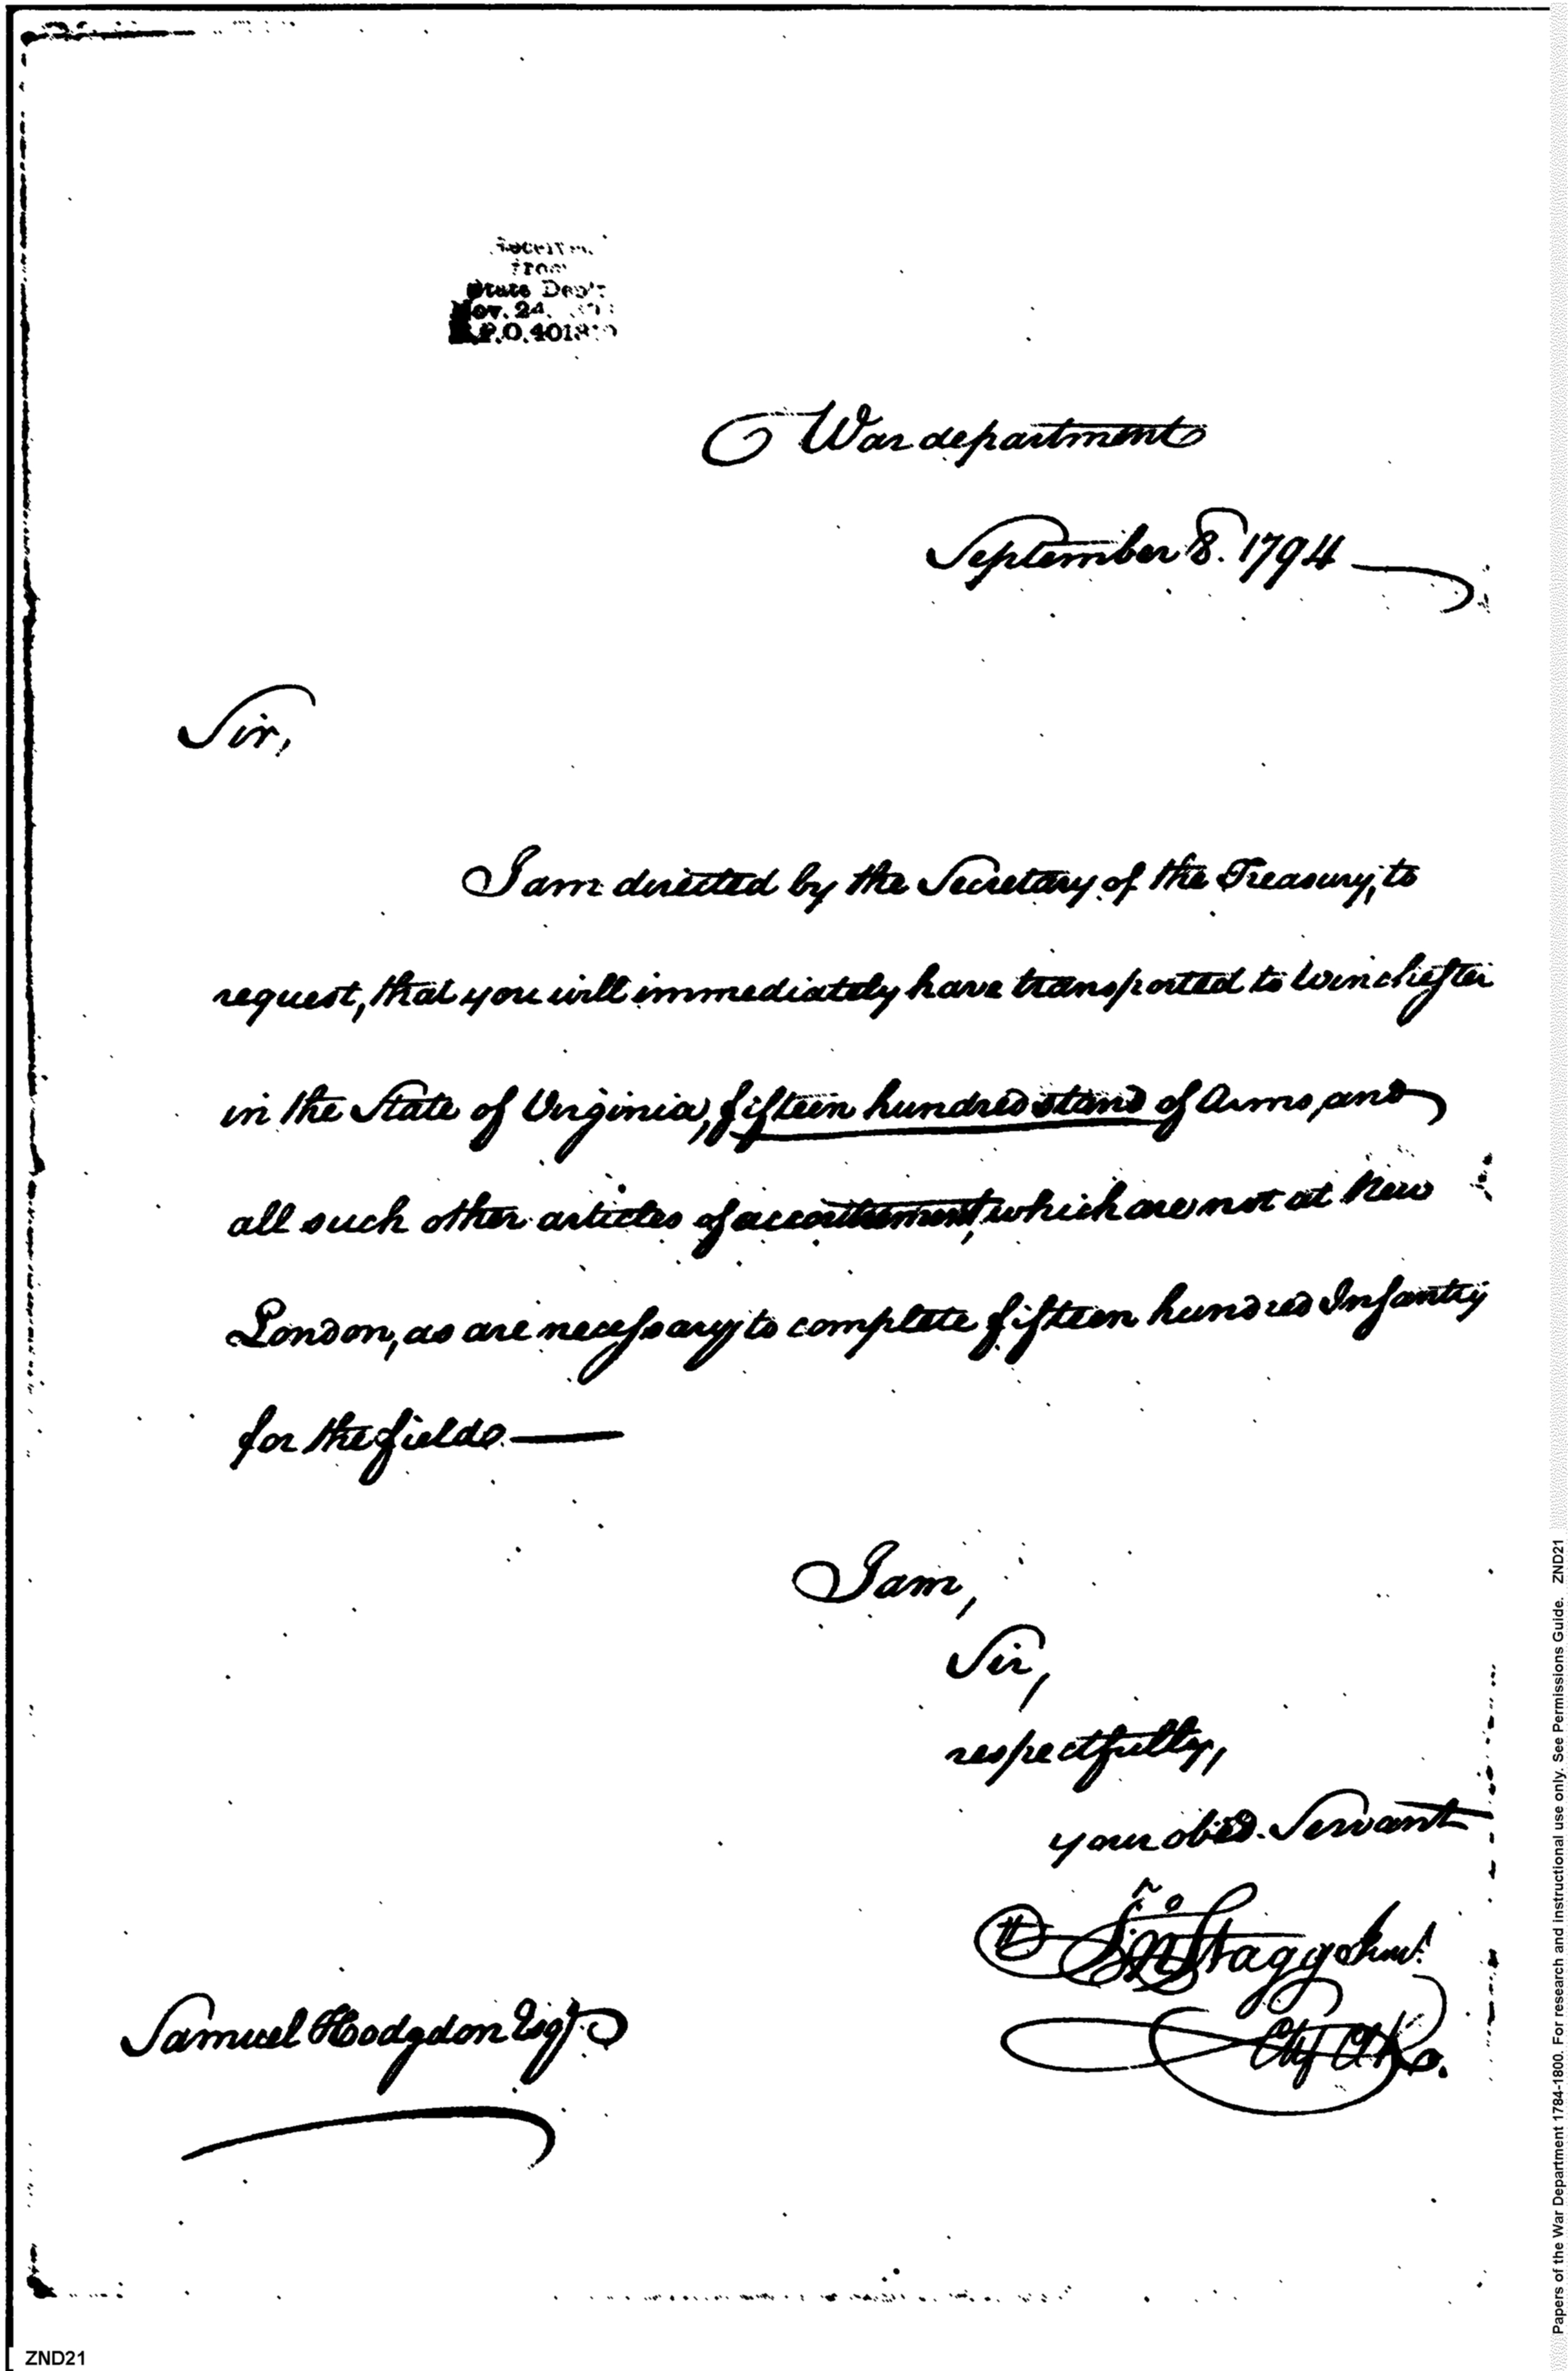 Received
from
State Dep't
Nov. 24,
R.P.O. 401810
War department
September 8. 1794
Sir,
I am directed by the Secretary of the Treasury, to
request, that you will immediately have transported to Winchester
in the State of Virginia, fifteen hundred stand of Arms, and
all such other articles of accoutrement, which are not at New
London, as are necessary to complete fifteen hundred Infantry
for the field.
I am,
Sir,
respectfully,
your obed. Servant
Jno Stagg Junr.
Samuel Hodgdon Esqr.
Papers of the War Department 1784-1800. For research and instructional use only. See Permissions Guide. ZND21
ZND21